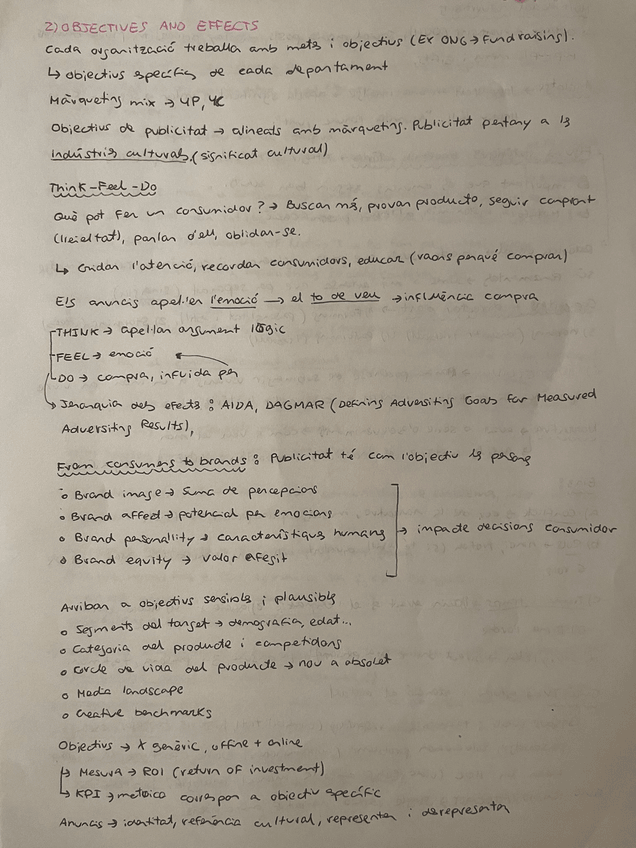 2) OBJECTIVES AND EFFECTS
Cada organització treballa amb mets i objectius (Ex ONG → Fundraising).
↳ objectius específics de cada departament
Màrqueting mix → 4P, 4C
Objectius de publicitat → alineats amb màrqueting. Publicitat pertany a la
indústria cultural, (significat cultural)
Think-Feel-Do
Què pot fer un consumidor? → Buscar més, provar producte, seguir comprant
(lleialtat), parlar d'ell, oblidar-se.
↳ Cridar l'atenció, recordar consumidors, educar (raons perquè comprar)
Els anuncis apel·len l'emoció → el to de veu → influència compra
THINK → apel·lar argument lògic
FEEL → emoció
DO → compra, influida per
→ Jerarquia dels efectes : AIDA, DAGMAR (Defining Adversiting Goals for Measured
Adversiting Results),
From consumers to brands : Publicitat té com l'objectiu la persona
• Brand image → suma de percepcions
• Brand affect → potencial per emocions
• Brand personallity → característiques humanes → impacte decisions consumidor
• Brand equity → valor afegit
Arribar a objectius sensibles i plausibles
• Segments del target → demografia, edat...
• Categoria del producte i competidors
• Cercle de vida del producte → nou a obsolet
• Media landscape
• Creative benchmarks
Objectius → X genèric, offine + online
↳ Mesura → ROI (return of investment)
↳ KPI → mètrica correspon a objectiu específic
Anuncis → identitat, referència cultural, representen i